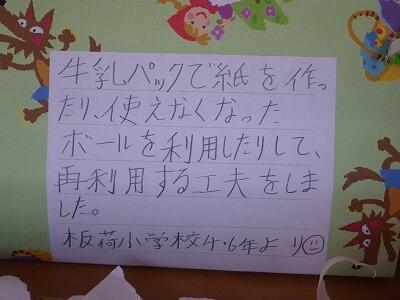 牛乳パックで紙を作っ
たり、使えなくなった
ボールを利用したりして、
再利用する工夫をしま
した。
板荷小学校4・6年より